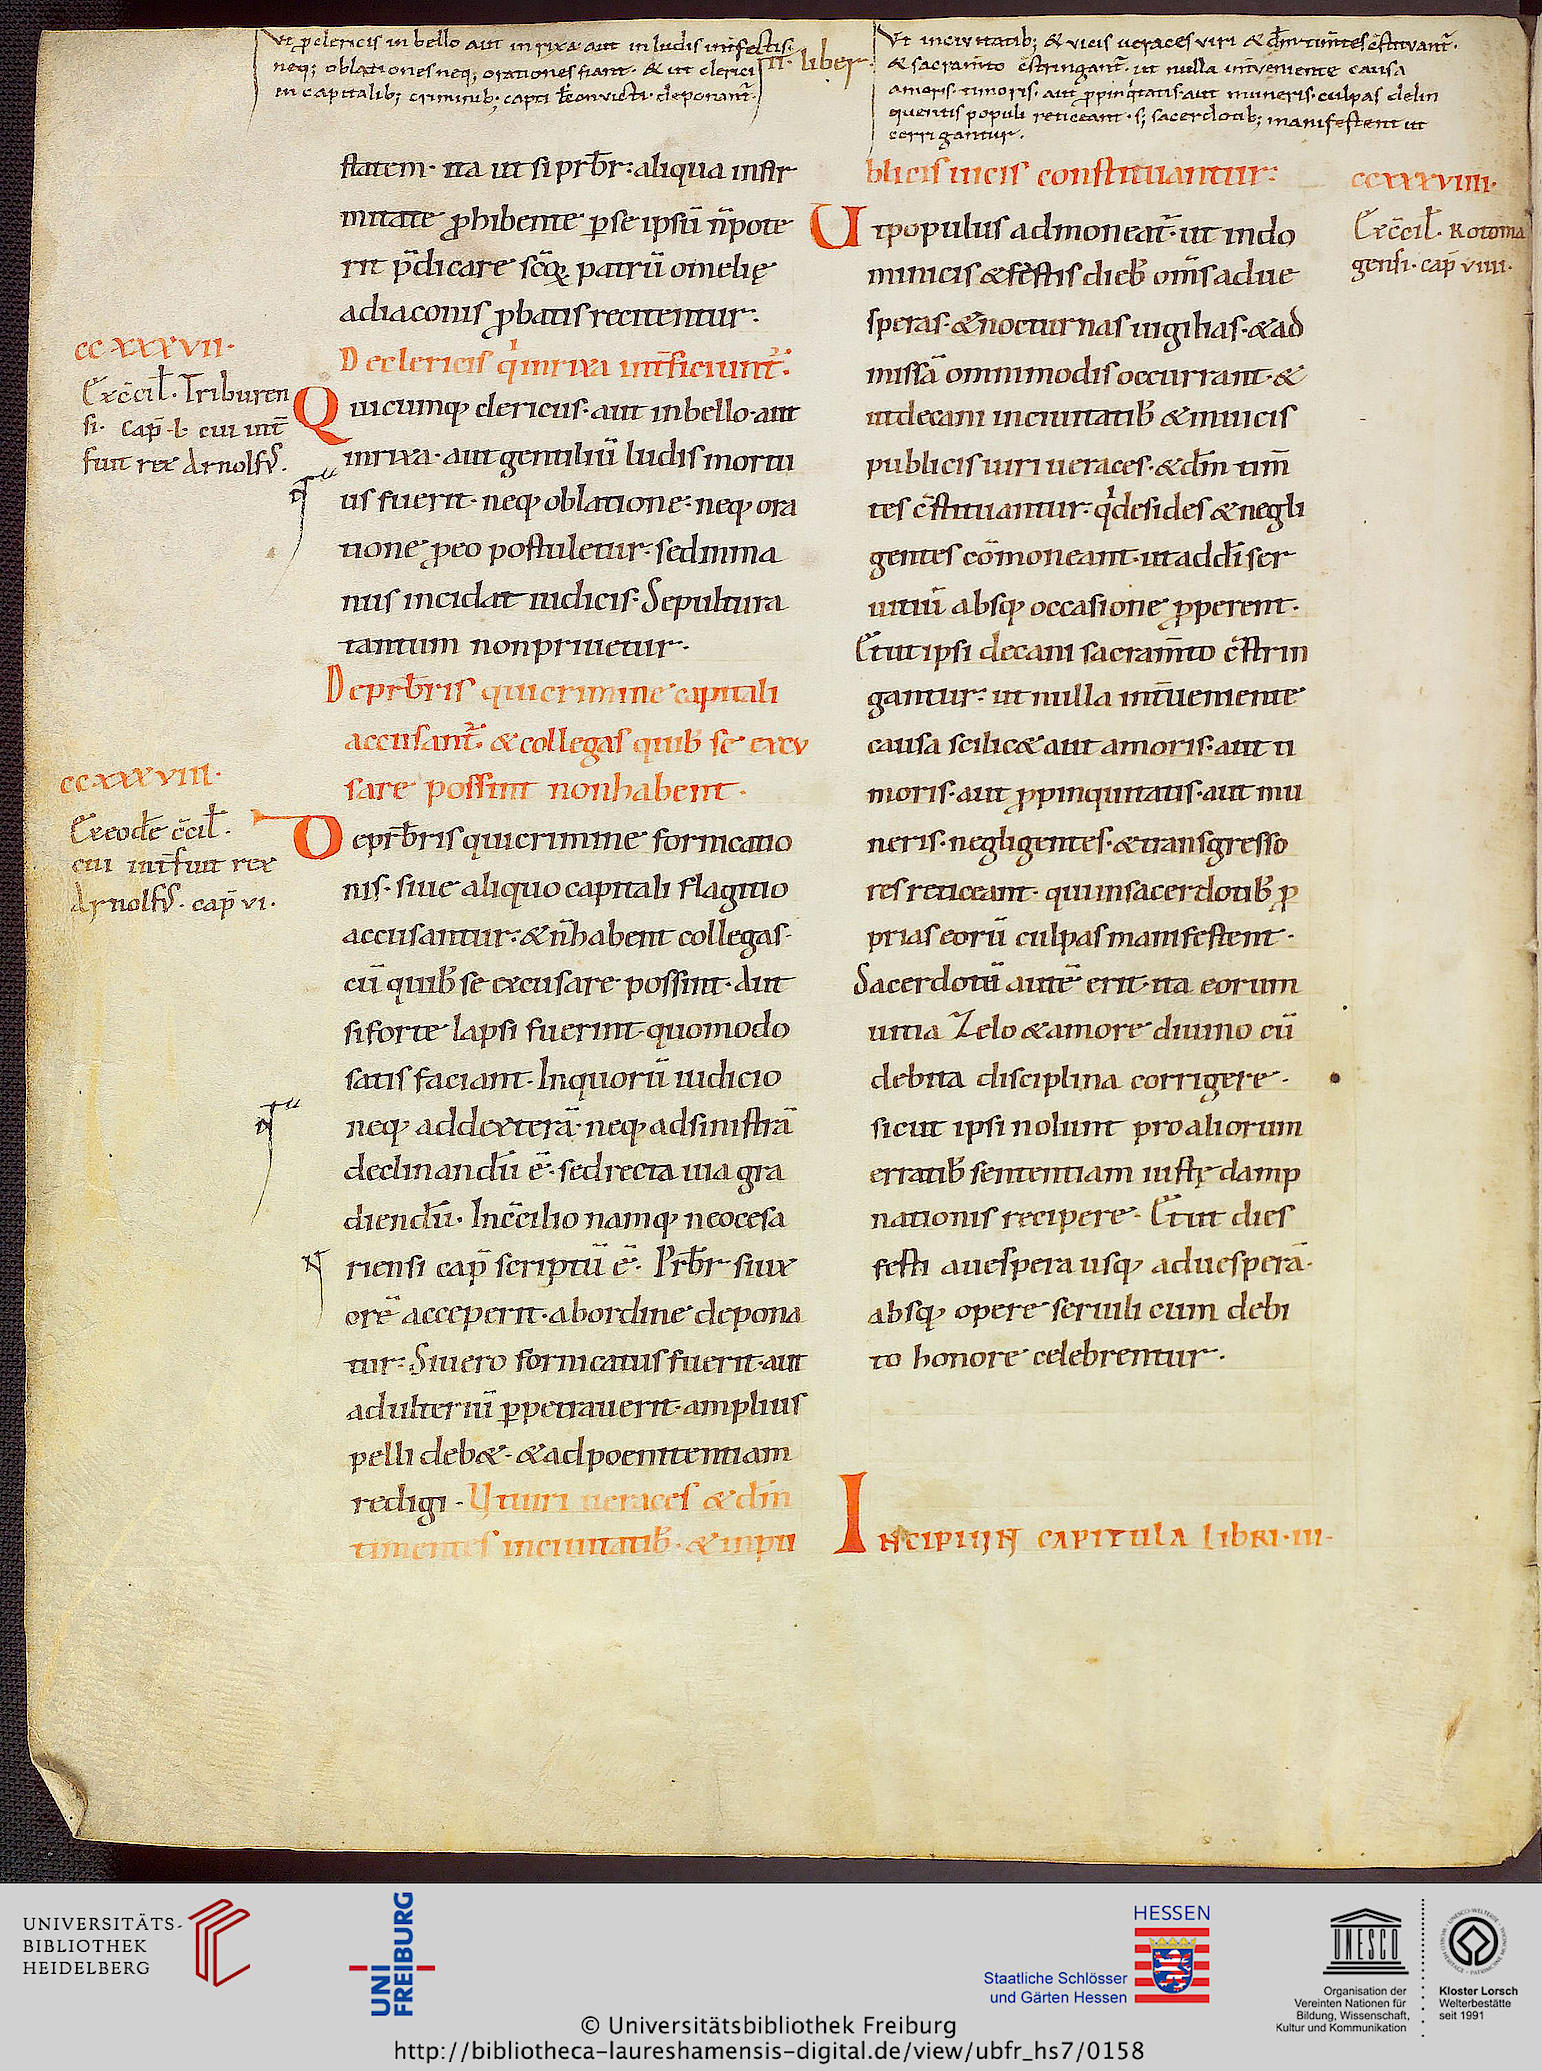 Ut p̄ clericis in bello aut in rixa aut in ludis int̄fectis·
neq; oblationes neq; orationes fiant· & ut clerici
in capitalib; criminib; capti t̄ convicti deponant̄·
II· liber·
Ut in civitatib; & vicis veraces viri & dm̄ timētes c̄stituant̄·
& sacram̄to c̄stringant̄· ut nulla int̄veniente causa
amoris· timoris· aut p̱pinq̇tatis· aut muneris· culpas delin
quentis populi reticeant· s; sacerdotib; manifestent ut
corrigantur·
statem· ita ut si pr̄br· aliqua infir
mitate p̱hibente p̱ se ipsū n̄ pote
rit p̄dicare sc̄oꝝ patrū omelię
a diaconis p̱batis recitentur·
CCXXXVII·
De clericis qͥ in rixa int̄ficiunt̄·
Ex c̄cil̄· Triburen
si· cap̄ ·L· cui int̄
fuit rex Arnolf᷒·
Quicumq; clericus· aut in bello· aut
in rixa· aut gentiliū ludis mortu
us fuerit· neq; oblatione· neq; ora
tione p̱ eo postuletur· sed in ma
nus incidat iudicis· Sepultura
tantum non privetur·
De pr̄bris qui crimine capitali
accusant̄· & collegas quib; se excu
sare possint non habent·
CCXXXVIII·
Ex eodē c̄cil̄·
cui int̄fuit rex
Arnolf᷒· cap̄ VI·
De pr̄bris qui crimine fornicatio
nis· sive aliquo capitali flagitio
accusantur· & n̄ habent collegas·
cū quib; se excusare possint· Aut
si forte lapsi fuerint· quomodo
satis faciant· In quorū iudicio
neq; ad dexterā· neq; ad sinistrā
declinandū ē· sed recta via gra
diendū· In c̄cilio namq; neocesa
riensi cap̄ scriptū ē· Pr̄br si ux
orē acceperit· ab ordine depona
tur· Si vero fornicatus fuerit· aut
adulteriū p̱petraverit· amplius
pelli deb&· & ad poenitentiam
redigi· Ut viri veraces & dm̄
timentes in civitatib; & in pu
blicis vicis constituantur·
CCXXXVIIII·
Ex c̄cil̄· Rotoma
gensi· cap̄ VIIII·
Ut populus admoneat̄· ut in do
minicis & festis dieb; om̄s ad ve
speras· & nocturnas vigilias· & ad
missā omnimodis occurrant· &
ut decani in civitatib; & in vicis
publicis viri veraces· & dm̄ tim̄
tes c̄stituantur· qͥ desides & negli
gentes cōmoneant· ut ad dī ser
vitiū absq; occasione p̱perent·
Et ut ipsi decani sacram̄to c̄strin
gantur· ut nulla int̄veniente
causa scilic& aut amoris· aut ti
moris· aut p̱pinquitatis· aut mu
neris· negligentes· & transgresso
res reticeant· qui in sacerdotib; p̱
prias eorū culpas manifestent·
Sacerdotū autē erit· ita eorum
vitia Zelo & amore divino cū
debita disciplina corrigere·
sicut ipsi nolunt pro aliorum
erratib; sententiam iustę damp
nationis recipere· Et ut dies
festi a vespera usq; ad vesperā·
absq; opere servili cum debi
to honore celebrentur·
INCIPIUNT CAPITULA LIBRI· III·
UNIVERSITÄTS-
BIBLIOTHEK
HEIDELBERG
UNI
FREIBURG
HESSEN
Staatliche Schlösser
und Gärten Hessen
UNESCO
Organisation der
Vereinten Nationen für
Bildung, Wissenschaft,
Kultur und Kommunikation
Kloster Lorsch
Welterbestätte
seit 1991
© Universitätsbibliothek Freiburg
http://bibliotheca-laureshamensis-digital.de/view/ubfr_hs7/0158